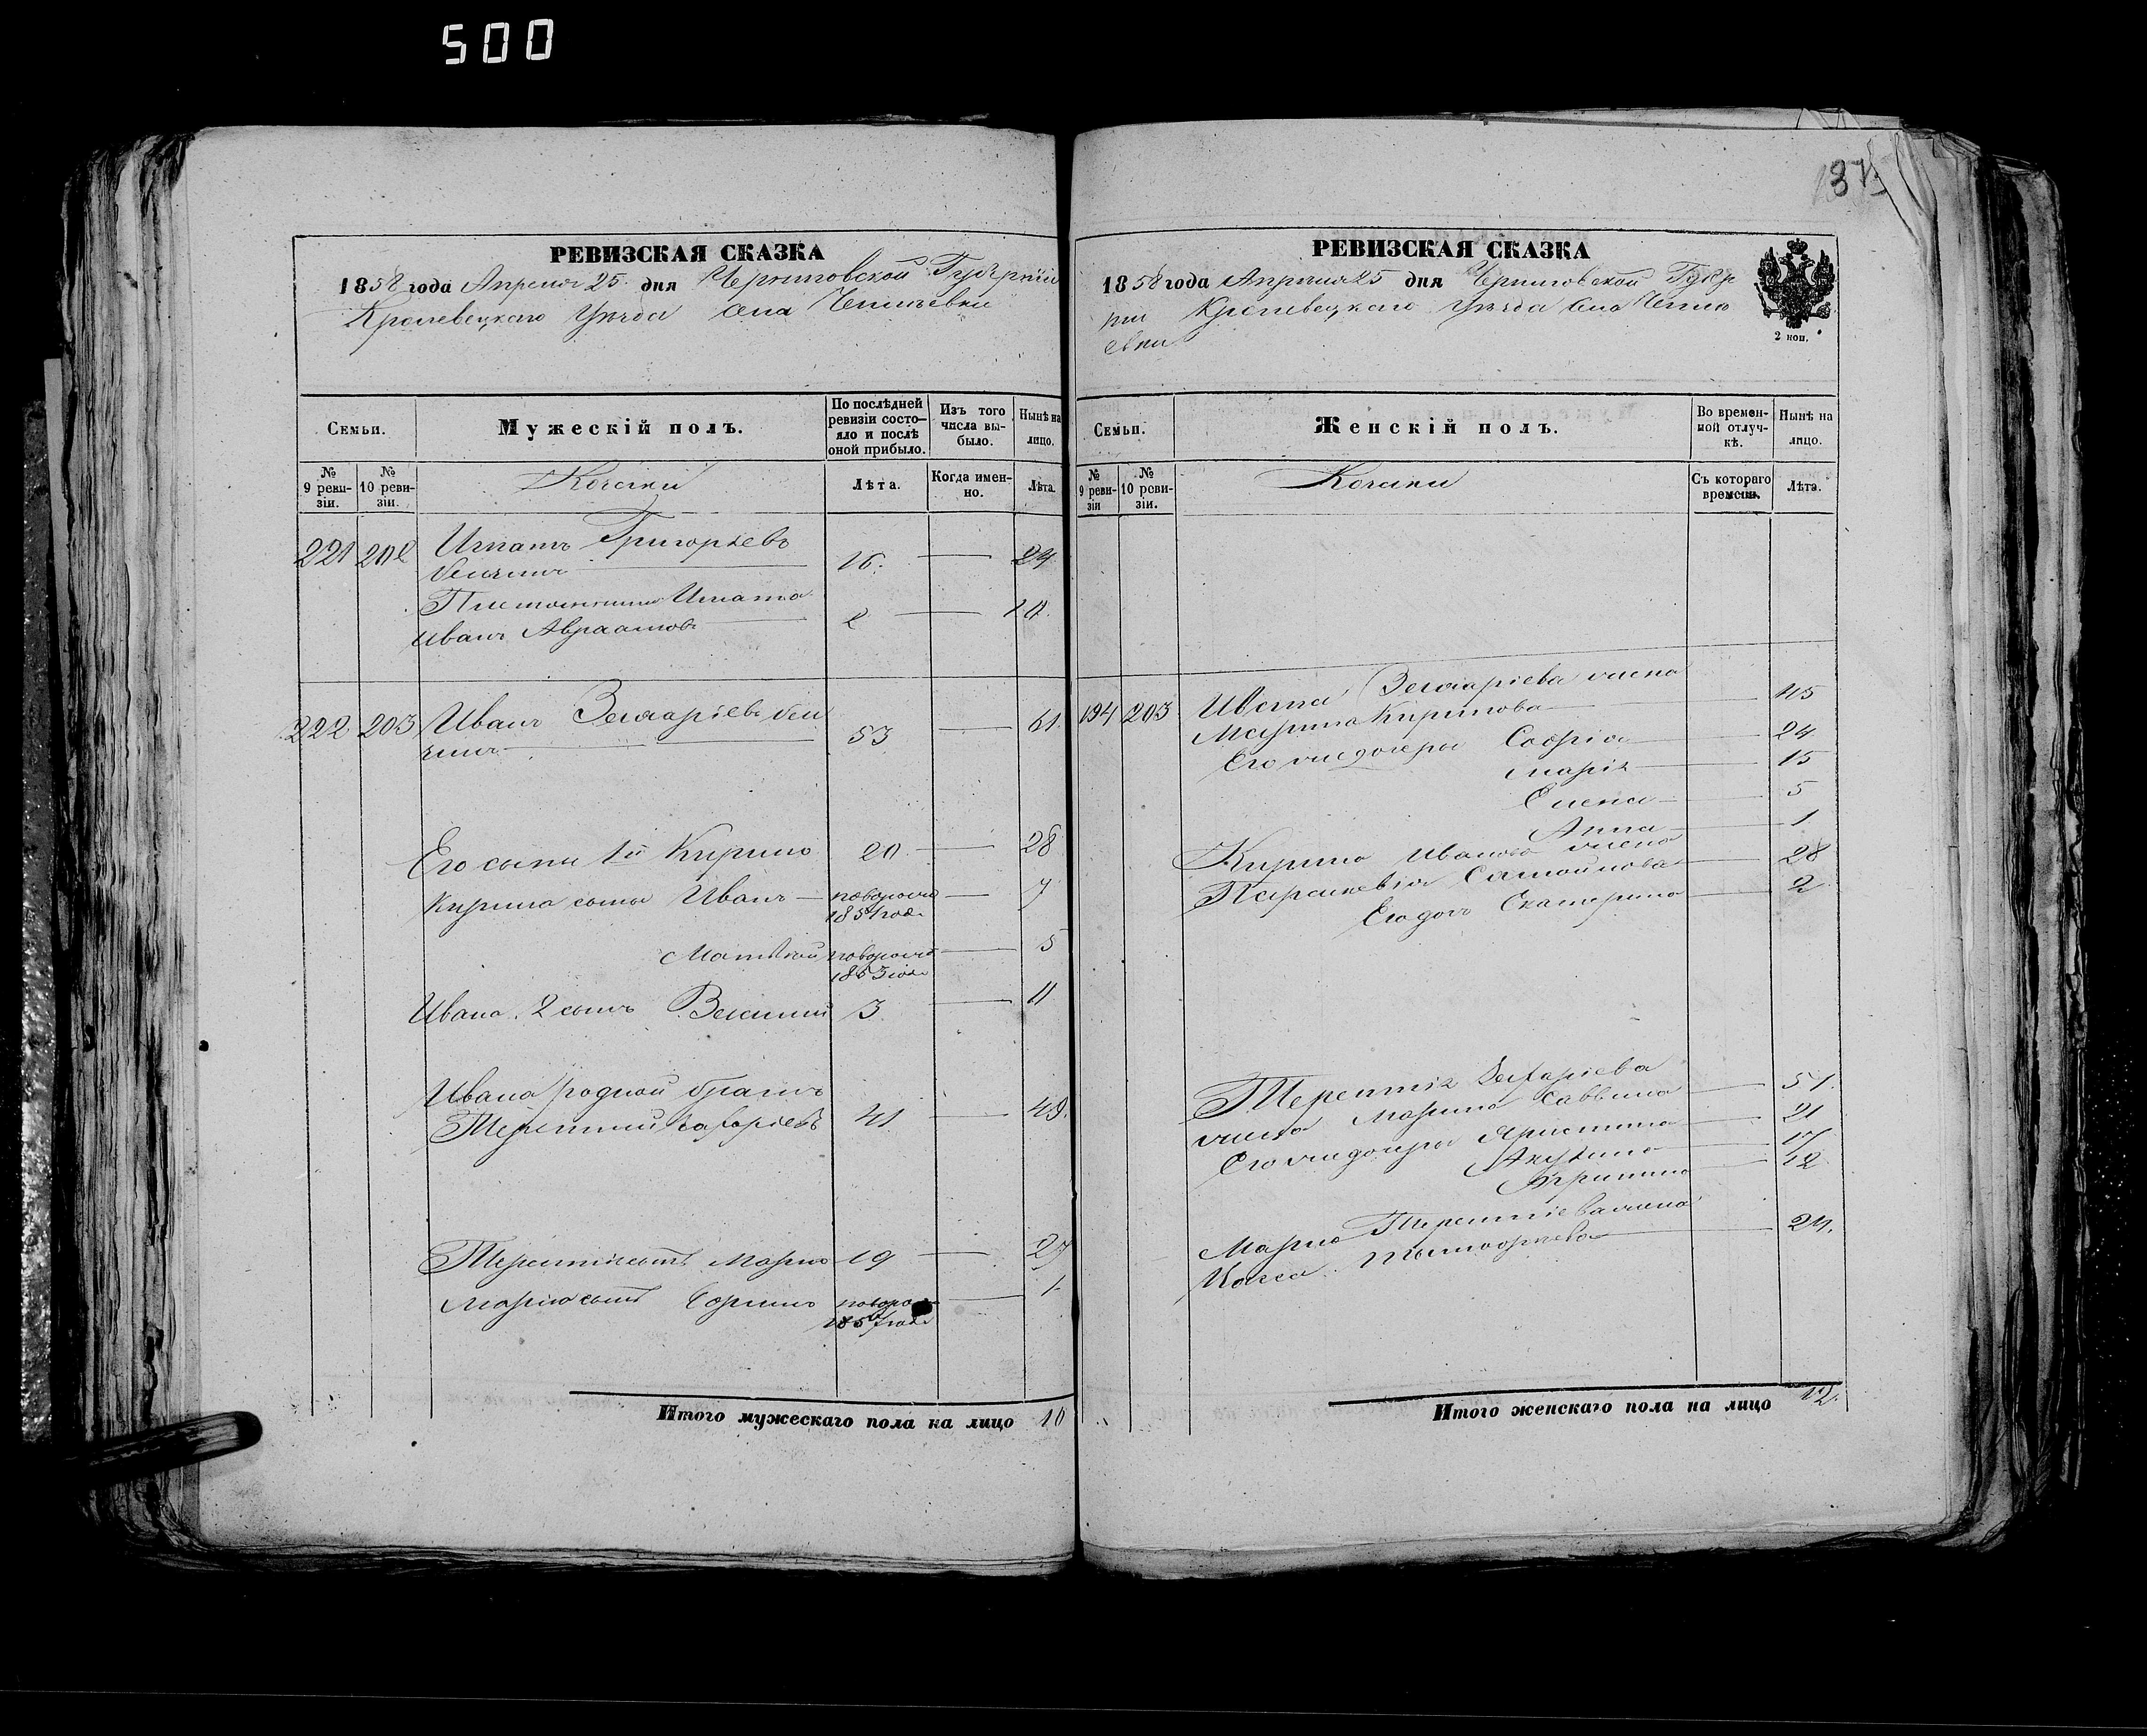 500
137
РЕВИЗСКАЯ СКАЗКА
1858 года Апреля 25 дня Черниговской Губерніи
Кролевецкаго Уѣзда села
Семьи.
Мужескій полъ.
По послѣдней ревизіи состояло и послѣ оной прибыло.
Изъ того числа выбыло.
Нынѣ на лицо.
№ 9 ревизіи.
№ 10 ревизіи.
Козаки
Лѣта.
Когда именно.
Лѣта.
221 202 Игнатъ Григорьевъ
16. 24
Племянникъ Игната
Иванъ Авраамовъ 2 10
222 203 Иванъ Захаріевъ
53 61
Его сынъ 1й Кирило 20 28
Кирила сыны Иванъ новорожд 7
1851 года
Матвѣй новорожд 5
1853 года
Ивана 2 сынъ Василий 3 11
Ивана родной братъ
Терентий Захаріевъ 41 49
Терентія сынъ Марко 19 27
Марка сынъ новорож 1
1857 года
Итого мужескаго пола на лицо 10
РЕВИЗСКАЯ СКАЗКА
1858 года Апреля 25 дня Черниговской Губер
ніи Кролевецкаго Уѣзда села
евки
2 коп.
Семьи.
Женскій полъ.
Во временной отлучкѣ.
Нынѣ на лицо.
№ 9 ревизіи
№ 10 ревизіи.
Козаки
Съ котораго времени.
Лѣта.
194 203 Ивана Захаріева жена
Марина Кирилова 45
Его же дочери Софія 24
Марія 15
Елена 5
Анна 1
Кирила Иванова жена
Параскевія Самойлова 28
Его дочь Екатерина 2
Терентія Захаріева
жена Марина Саввина 51
Его же дочери Христина 21
Акулина 17
Ирина 12
Марка Терентіева жена
24.
Итого женскаго пола на лицо 12.